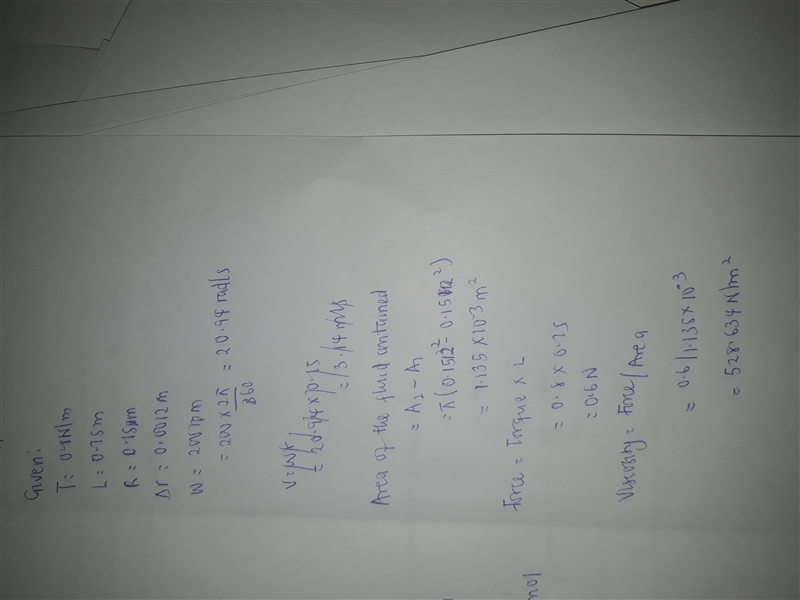 Given:
T = 0.8 N/m
L = 0.75m
R = 0.15m
Δr = 0.0012 m
W = 200 rpm
= 200 × 2π / 60 = 20.94 rad/s
V = wr
= 20.94 × 0.15
= 3.14 m/s
Area of the fluid contained
= A2 - A1
= π(0.1512² - 0.15²)
= 1.135 × 10-3 m²
Force = Torque × L
= 0.8 × 0.75
= 0.6N
Viscosity = Force/Area
= 0.6/1.135 × 10-3
= 528.634 N/m²
mol